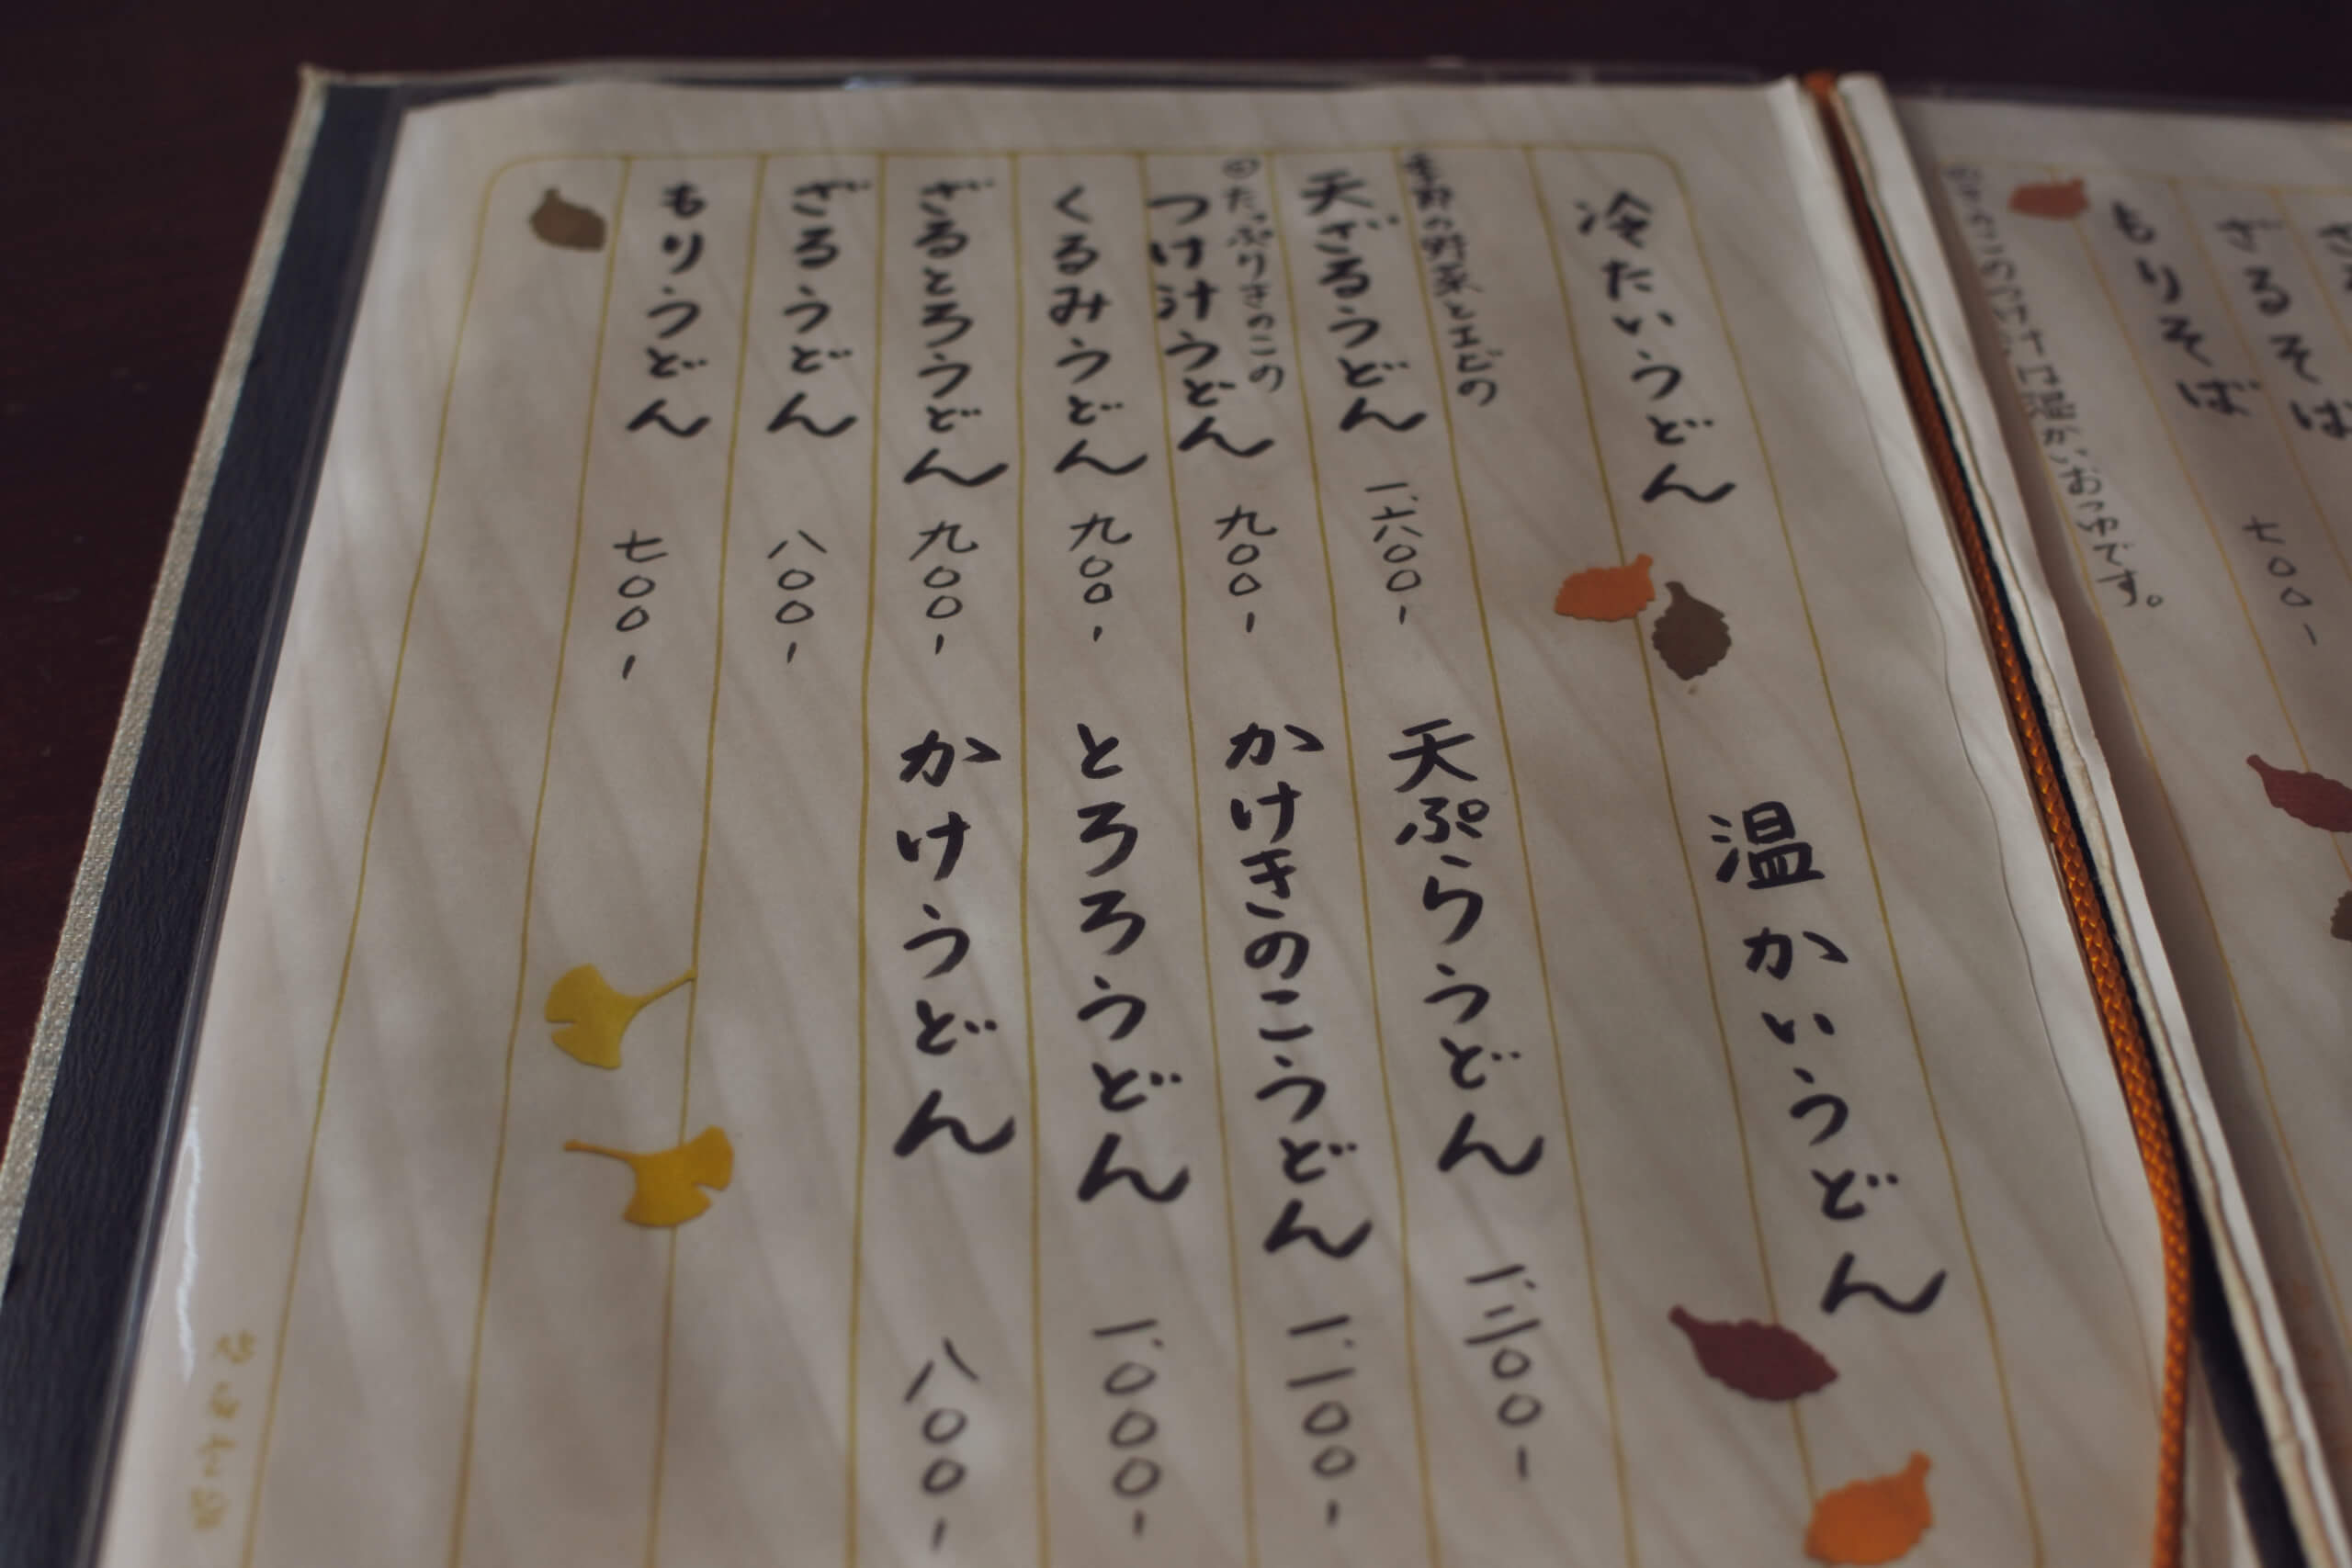 ざるそば
もりそば 七〇〇-
つけ汁は温かいおつゆです。
冷たいうどん
季節の野菜とエビの
天ざるうどん 一、六〇〇-
たっぷりきのこの
つけ汁うどん 九〇〇-
くるみうどん 九〇〇-
ざるとろうどん 九〇〇-
ざるうどん 八〇〇-
もりうどん 七〇〇-
温かいうどん
天ぷらうどん 一、三〇〇-
かけきのこうどん 一、一〇〇-
とろろうどん 一、〇〇〇-
かけうどん 八〇〇-